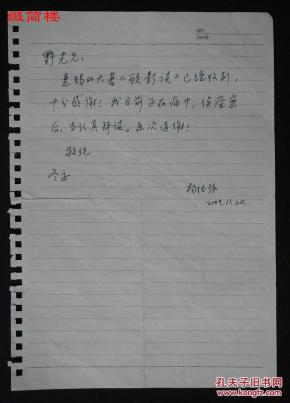 缀简楼
NO.
DATE
野光兄:
惠赐的大著《顾影谈》已经收到,
十分感谢!我目前正在病中,俟痊愈
后,当认真拜读。再次道谢!
敬祝
冬安
2009.11.20.
孔夫子旧书网